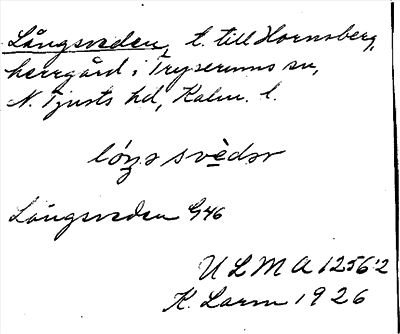 Långsveden, t. till Hornsberg,
herrgård i Tryserums sn,
N. Tjusts hd, Kalm. l.
lóŋsvèdər
Långsveden G46
ULMA 1256:2
K. Larm 1926